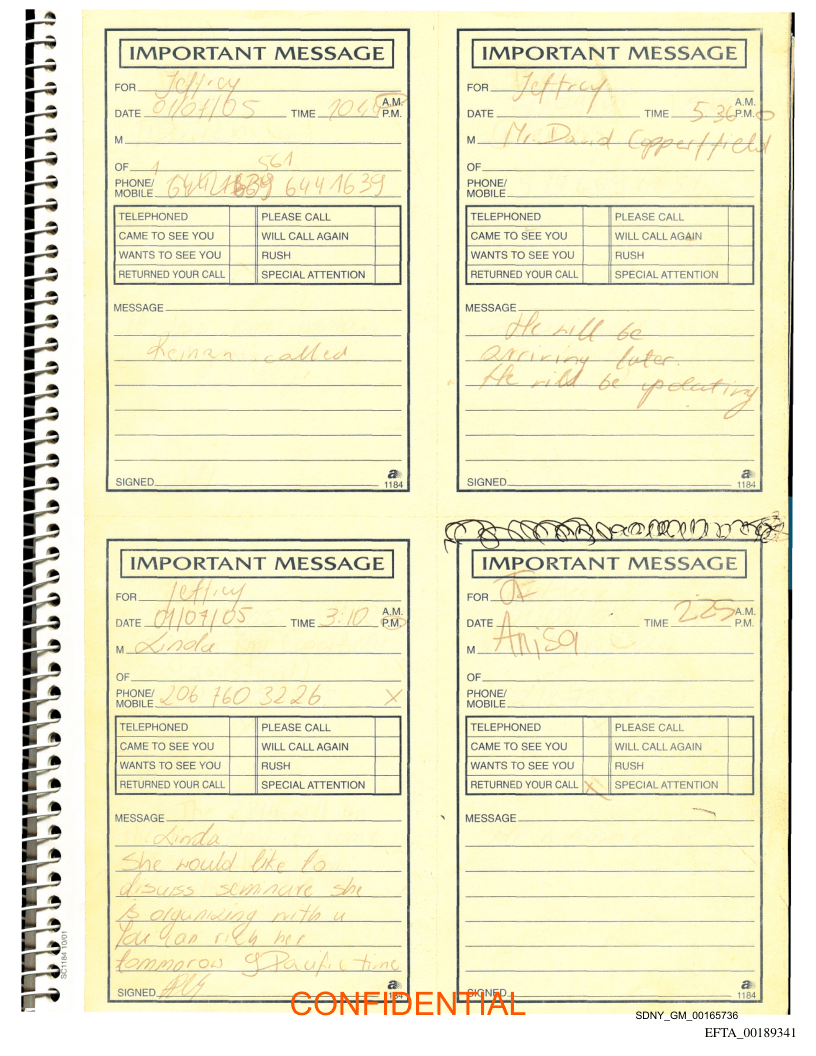 IMPORTANT MESSAGE
FOR Jeffrey
DATE 01/07/05 TIME A.M. P.M.
M
OF 561
PHONE/ MOBILE 6441639
TELEPHONED PLEASE CALL
CAME TO SEE YOU WILL CALL AGAIN
WANTS TO SEE YOU RUSH
RETURNED YOUR CALL SPECIAL ATTENTION
MESSAGE
called
SIGNED
a
1184
IMPORTANT MESSAGE
FOR Jeffrey
DATE TIME 5.36 A.M. P.M.
M Mr. David Copperffield
OF
PHONE/ MOBILE
TELEPHONED PLEASE CALL
CAME TO SEE YOU WILL CALL AGAIN
WANTS TO SEE YOU RUSH
RETURNED YOUR CALL SPECIAL ATTENTION
MESSAGE
He will be
arriving later.
He will be updating
SIGNED
a
1184
IMPORTANT MESSAGE
FOR Jeffrey
DATE 01/07/05 TIME 3:10 A.M. P.M.
M Linda
OF
PHONE/ MOBILE 206 760 3226 X
TELEPHONED PLEASE CALL
CAME TO SEE YOU WILL CALL AGAIN
WANTS TO SEE YOU RUSH
RETURNED YOUR CALL SPECIAL ATTENTION
MESSAGE
Linda
She would like to
disuss seminare she
is organizing with u
You can rich her
tommorow 9 Pacific time
SIGNED
a
1184
IMPORTANT MESSAGE
FOR JE
DATE TIME 2.25 A.M. P.M.
M Anisa
OF
PHONE/ MOBILE
TELEPHONED PLEASE CALL
CAME TO SEE YOU WILL CALL AGAIN
WANTS TO SEE YOU RUSH
RETURNED YOUR CALL X SPECIAL ATTENTION
MESSAGE
SIGNED
a
1184
SC1184 10/01
CONFIDENTIAL
SDNY_GM_00165736
EFTA_00189341